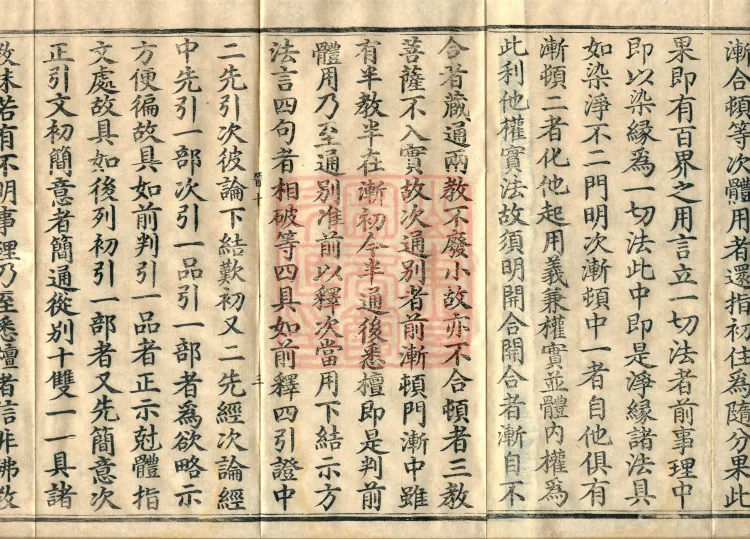 漸合頓等次體用者還指初住為隨分果此
果即有百界之用言立一切法者前事理中
即以染縁為一切法此中即是淨縁諸法具
如染淨不二門明次漸頓中一者自他俱有
漸頓二者化他起用義兼權實並體內權為
此利他權實法故須明開合開合者漸自不
合者藏通兩教不廢小故亦不合頓者三教
菩薩不入實故次通別者前漸頓門漸中雖
有半教半在漸初今半通後悉檀即是判前
體用乃至通別准前以釋次當用下結示方
法言四句者相破等四具如前釋四引證中
晉十
三
二先引次彼論下結歎初又二先經次論經
中先引一部次引一品引一部者為欲略示
方便徧故具如前判引一品者正示尅體指
文處故具如後列初引一部者又先簡意次
正引文初簡意者簡通從別十雙一一具諸
教味若有不明事理乃至悉檀者信非佛教